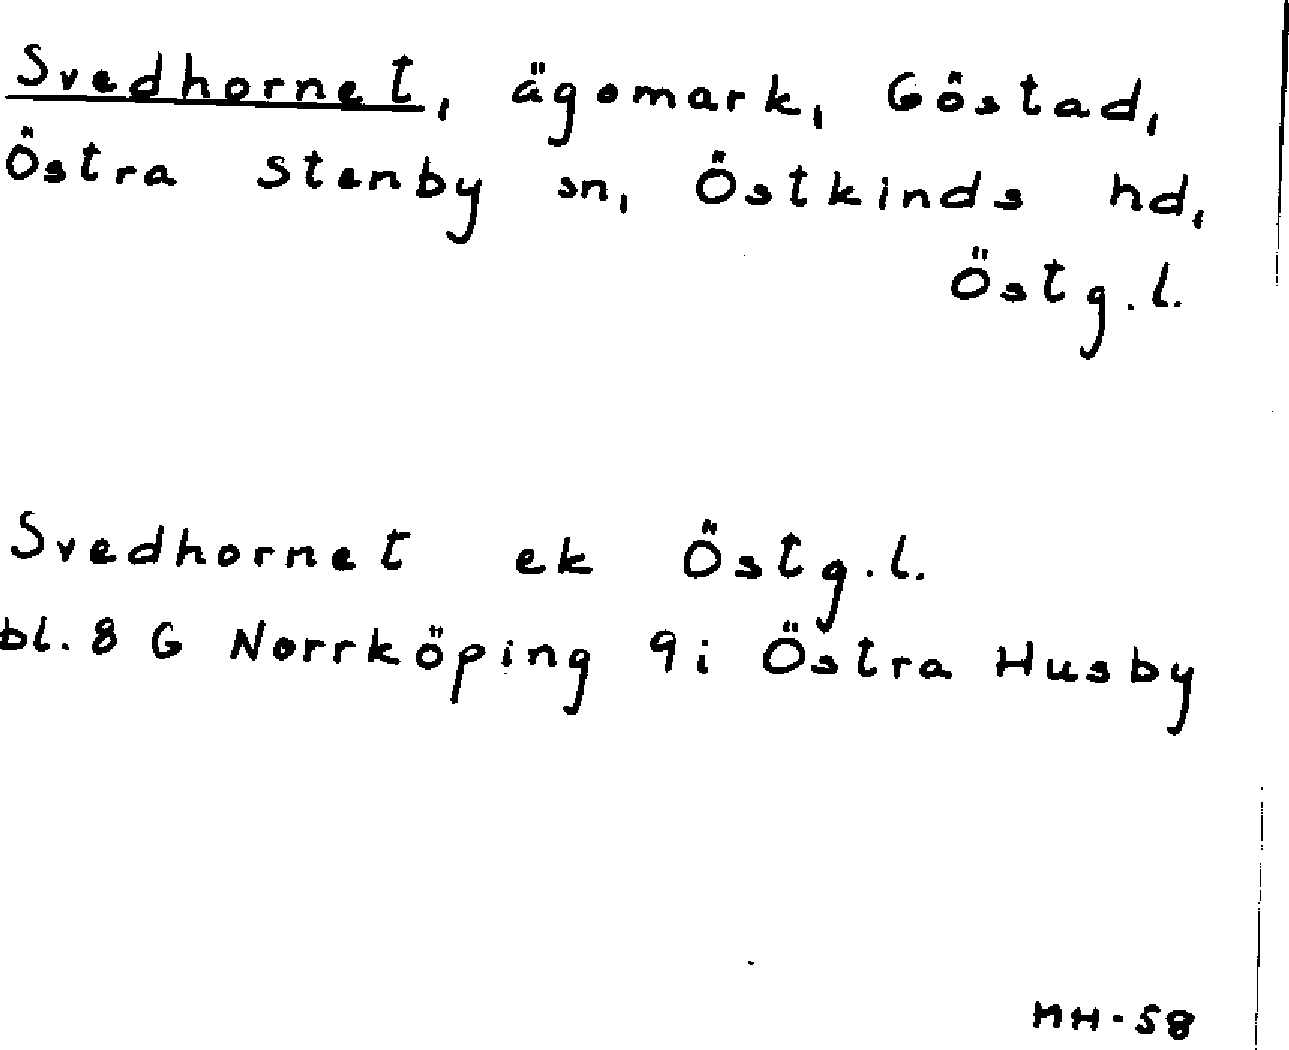 Svedhornet, ägomark, Göstad,
Östra Stenby sn, Östkinds hd,
Östg.l.
Svedhornet ek Östg.l.
bl. 8 G Norrköping 9i Östra Husby
MH-58